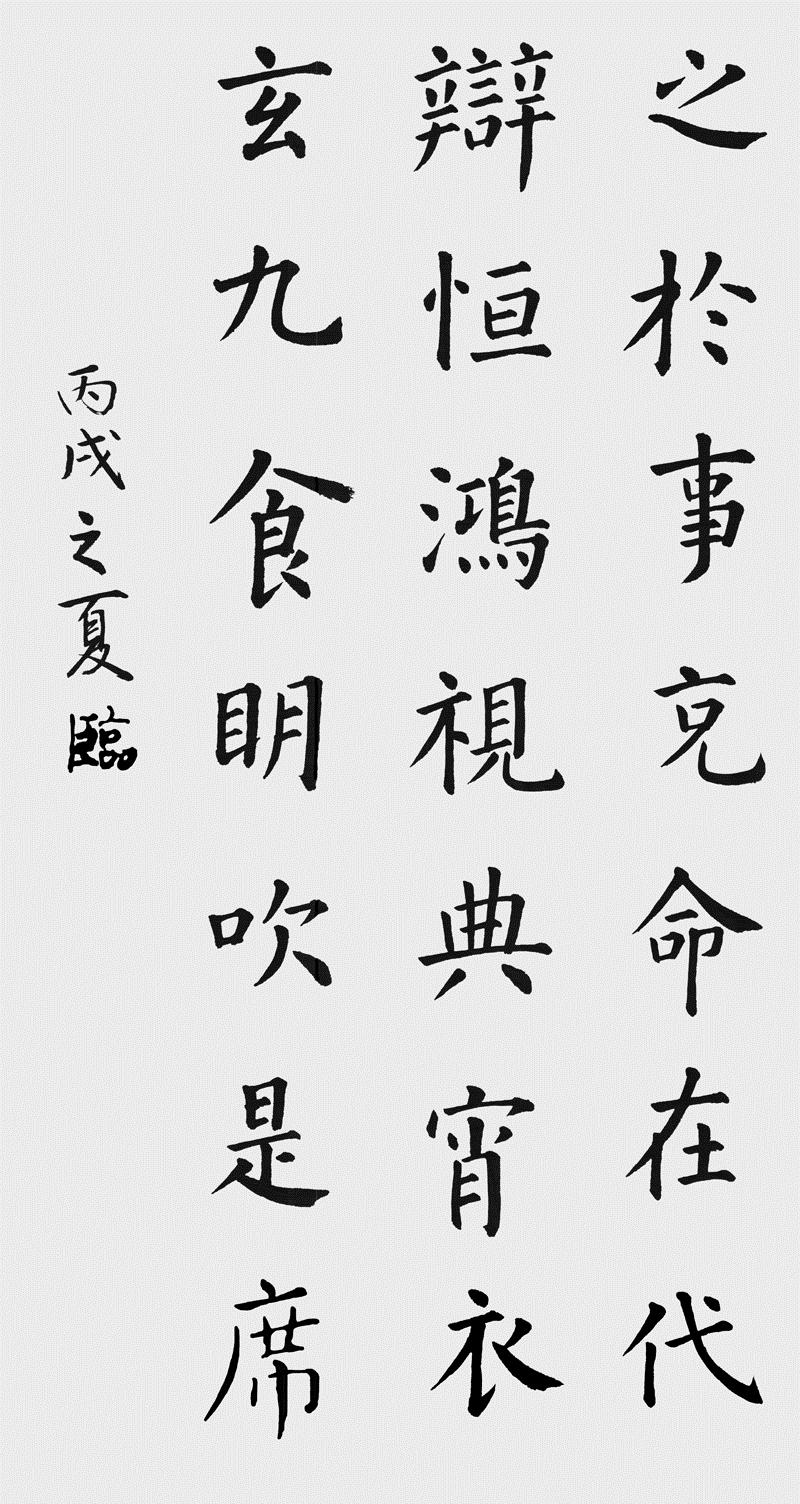 之於事克命在代
辯恒鴻視典宵衣
玄九食明吹是席
丙戌之夏臨